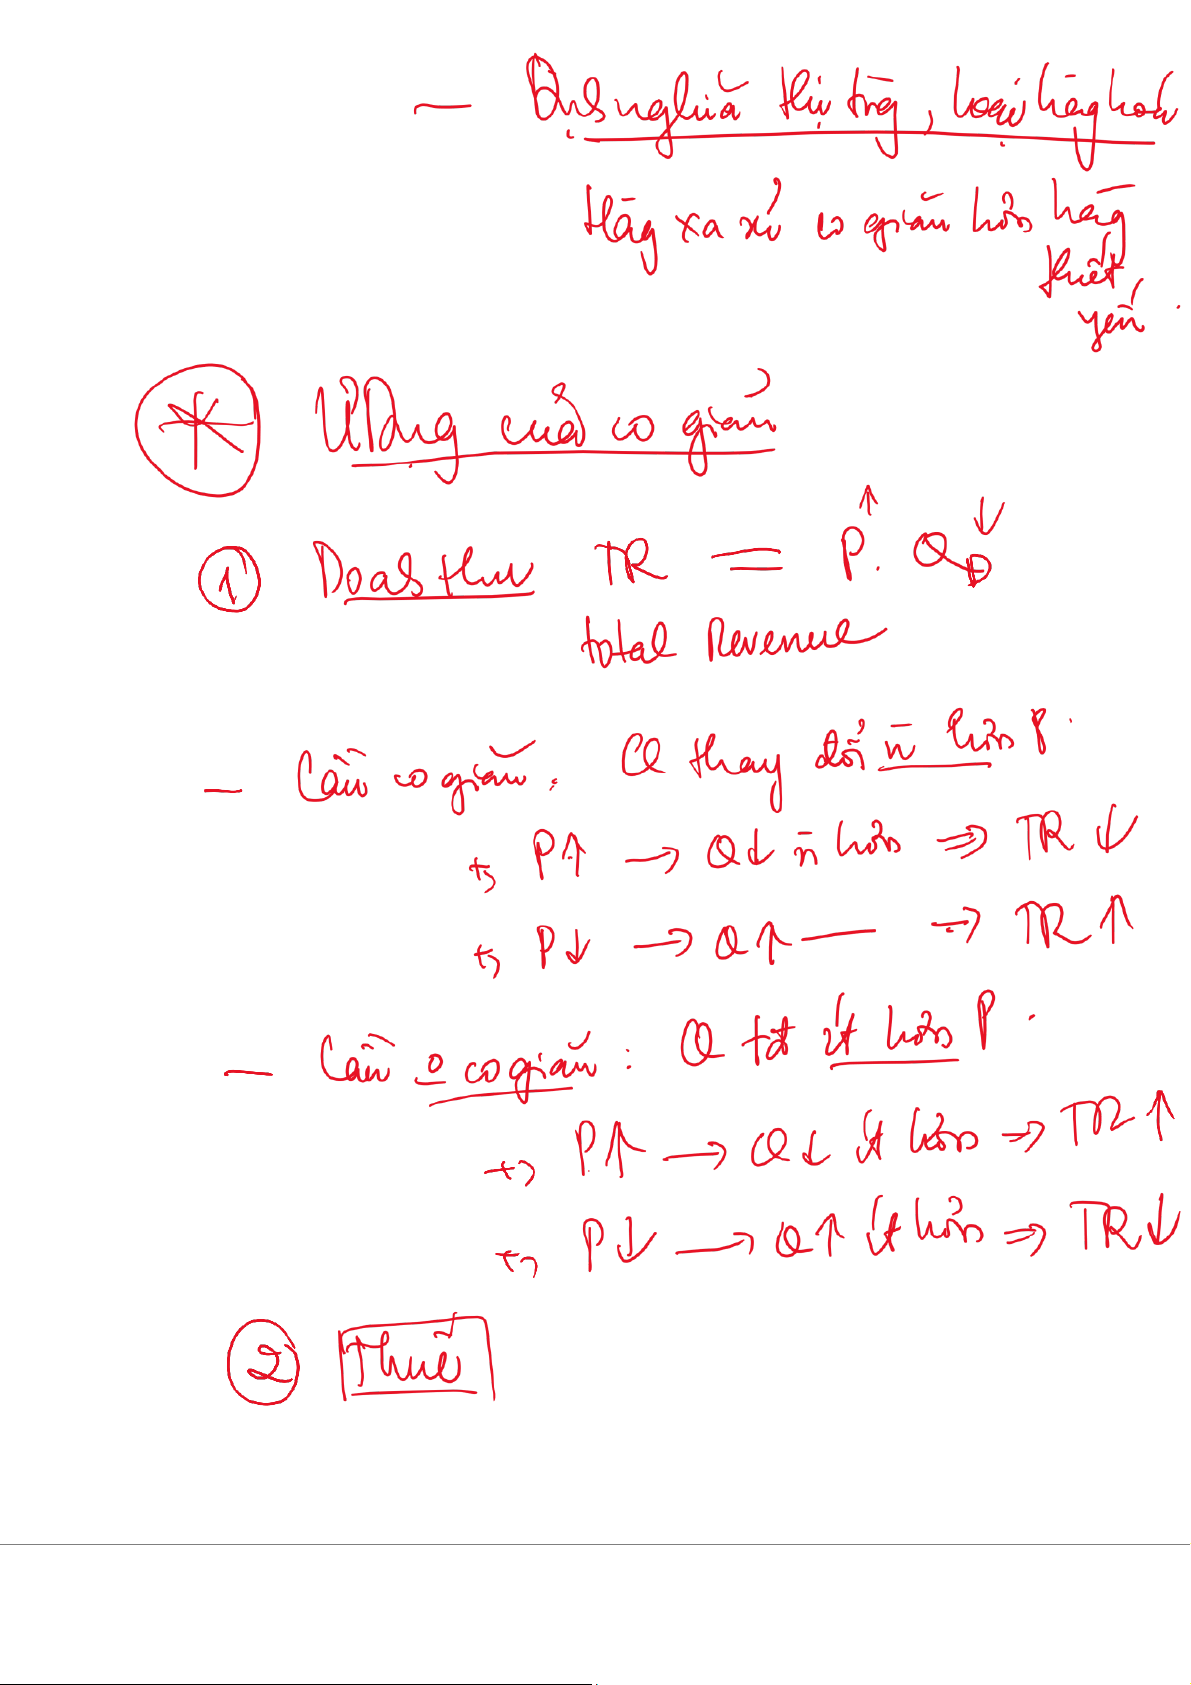 — Định nghĩa thị trg, loại hàng hoá
Hàg xa xỉ co giãn hơn hàg
thiết
yếu.
* Ứ Dụng của co giãn
① Doanh thu TR = P↑. Q_D↓
total Revenue
— Cầu co giãn: Q thay đổi n̄ hơn P.
+, P↑ → Q↓ n̄ hơn ⇒ TR↓
+, P↓ → Q↑ — → TR↑
— Cầu o co giãn: Q tđ ít hơn P.
+, P↑ → Q↓ ít hơn ⇒ TR↑
+, P↓ → Q↑ ít hơn ⇒ TR↓
② Thuế